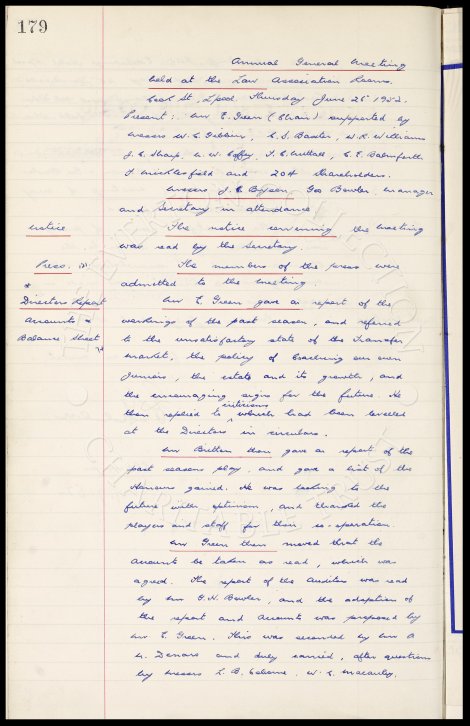 179
Annual General Meeting
held at the Law Association Rooms.
Cook St, L'pool. Thursday June 26th 1952.
Present:. Mr E. Green (Chair) supported by
Messrs W.C. Gibbins, C.S. Baxter, W.R. Williams
J.C. Sharp, N.W. Coffey, T.C. Nuttall, C.E. Balmforth
F Micklesfield and 204 Shareholders.
Messrs J.C. Geo Bowler, Manager
and Secretary in attendance.
Notice The notice convening the Meeting
was read by the Secretary.
Press. The members of the press were
admitted to the meeting.
Directors Report Mr E. Green gave a report of the
Accounts & workings of the past season, and referred
Balance Sheet to the unsatisfactory state of the Transfer
Market, the policy of our own
Juniors, the estate and its growth, and
the encouraging signs for the future. He
then replied to criticisms which had been levelled
at the Directors in circulars.
Mr Britton then gave a report of the
past seasons play, and gave a list of the
Honours gained. He was looking to the
future with optimism, and thanked the
players and staff for their co-operation.
Mr Green then moved that the
Accounts be taken as read, which was
agreed. The report of the Auditors was read
by Mr G.H. Bowler, and the adoption of
the report and Accounts was proposed by
Mr E. Green. This was seconded by Mr A
and duly carried, after questions
by Messrs L.B. W.S.